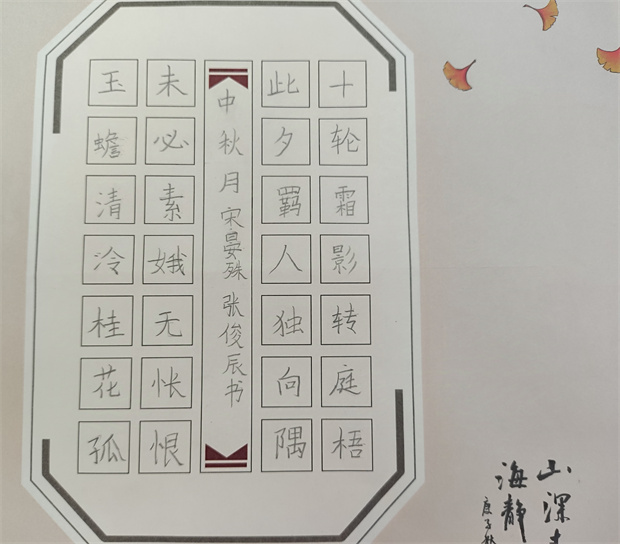 十轮霜影转庭梧
此夕羁人独向隅
中秋月 宋晏殊 张俊辰书
未必素娥无怅恨
玉蟾清冷桂花孤
山深
海静
庚子秋